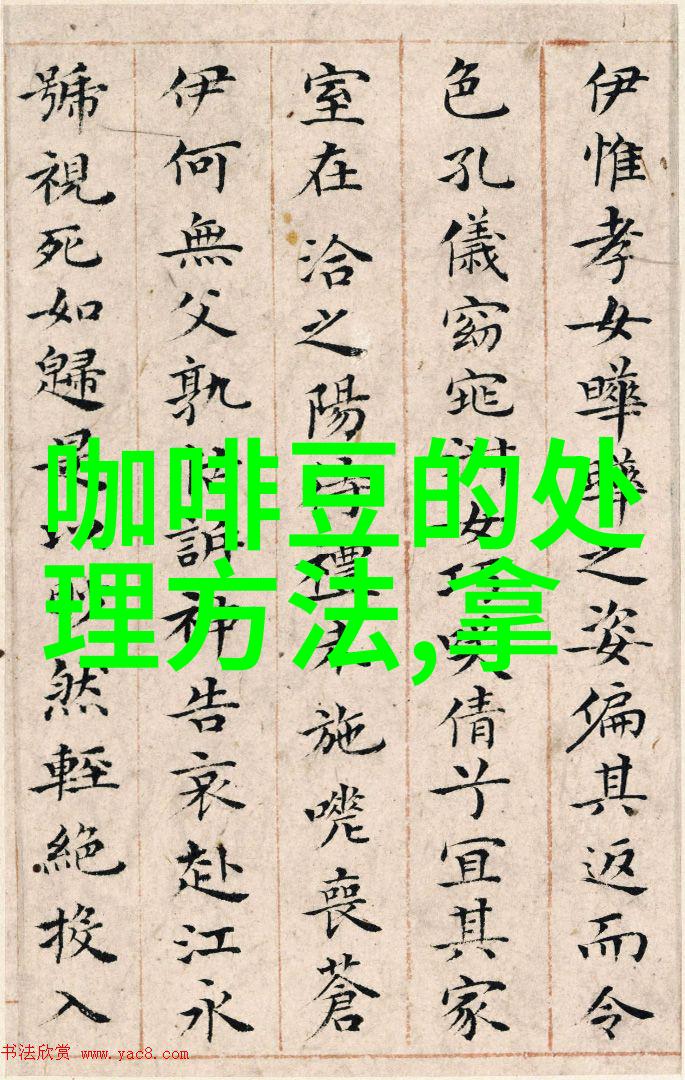 伊惟孝女曄曄之姿偏其返而令
色孔儀窈窕淑女巧笑倩兮宜其家
室在洽之陽待禮未施嗟喪蒼
伊何無父孰怙訴神告哀赴江永
號視死如歸是以眇然輕絕投入
咖啡豆的处
理方法,拿
书法欣赏 www.yac8.com